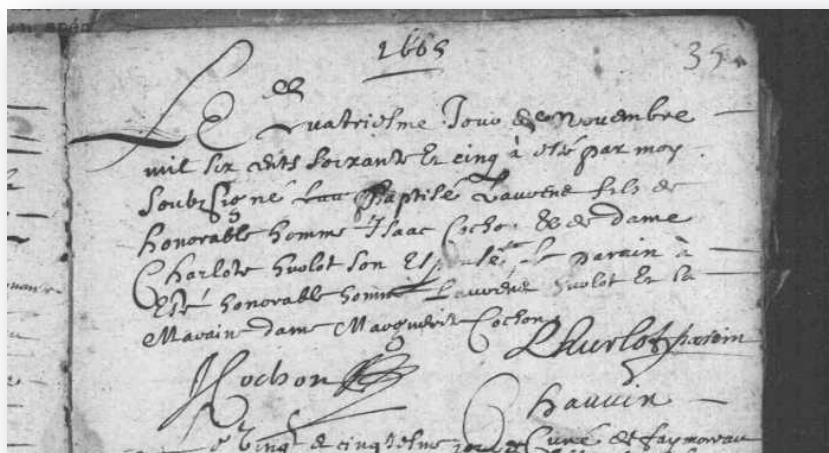 1665
35
Le Quatriesme Jour de Novembre
mil six cents soixante et cinq à esté par moy
soubsigné Baptisé Laurens fils de
honorable homme Isaac Cochon & de dame
Charlote hvolot son Espouse le parain à
Esté honorable homme Laurens hvolot Et la
Maraine dame Marguerite Cochon
Lhurlot parein
Cochon
Chauvin
Vingt & cinqiesme Curé de faymoreau